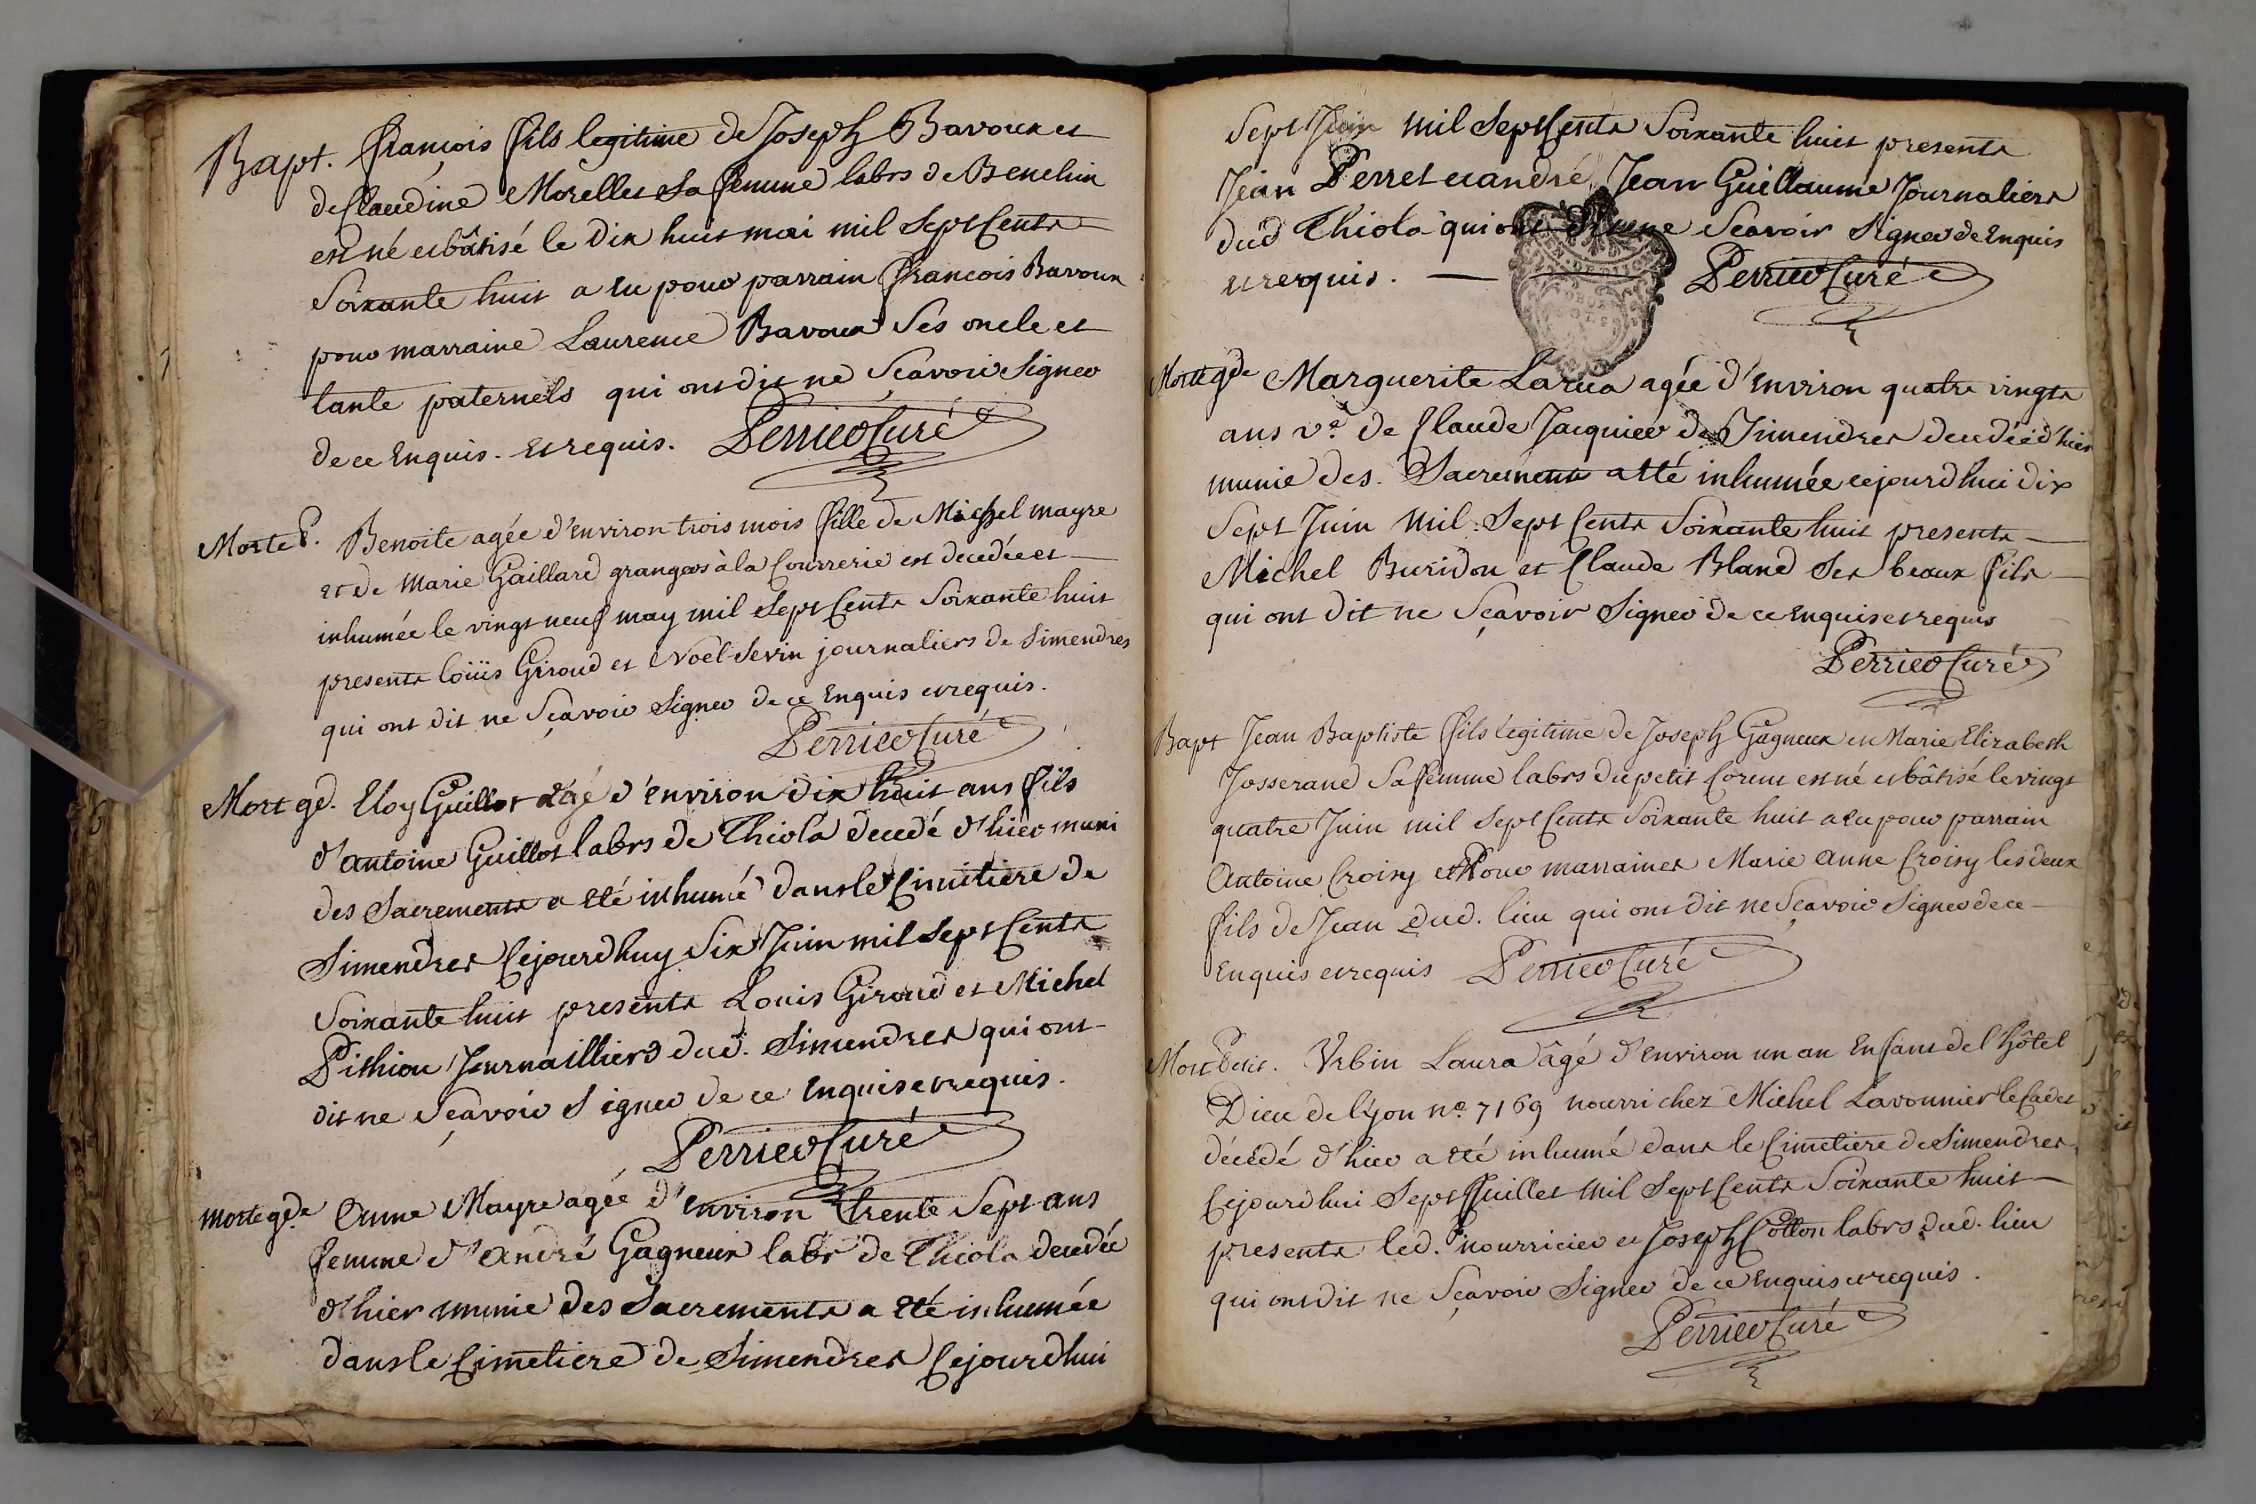 Bapt. françois fils legitime de Joseph Bavoux et
de Claudine Morellet Sa femme labrs de Benchin
est né et bâtisé le dix huit mai mil Sept Cents
Soixante huit a eu pour parrain françois Bavoux
pour marraine Laurence Bavoux Ses oncle et
tante paternels qui ont dit ne Sçavoir Signer
de ce Enquis. et requis. Perrier Curé
Morte P. Benoite agée d'environ trois mois fille de Michel mayre
et de Marie Gaillard grangers à la Courrerie est decedée et
inhumée le vingt neuf may mil Sept Cents Soixante huit
presents loüis Giroud et Noël Sevin journaliers de Simendres
qui ont dit ne Sçavoir Signer de ce Enquis et requis.
Perrier Curé
Mort gd. Eloy Guillot agé d'environ dix huit ans fils
d'antoine Guillot labrs de Thiola decedé d'hier muni
des Sacrements a eté inhumé dans le Cimitiere de
Simendres Cejourdhuy Six Juin mil Sept Cents
Soixante huit presents Louis Giroud et Michel
Pithiou Journailliers dud. Simendres qui ont
dit ne Sçavoir Signer de ce Enquis et requis.
Perrier Curé
morte gde Anne Mayre agée d'environ trente Sept ans
femme d'andré Gagneux labr de Thiola decedée
d'hier munie des Sacrements a eté inhumée
dans le Cimetiere de Simendres Cejourdhui
Sept Juin mil Sept Cents Soixante huit presents
Jean Perret et andré Jean Guillaume Journaliers
dud Thiola qui ont dit ne Scavoir Signer de Enquis
et requis. Perrier Curé
Morte gde Marguerite Larua agée d'Environ quatre vingts
ans ve. de Claude Jacquier de Simendres decedée d'hier
munie des Sacrements a eté inhumée cejourdhui dix
Sept Juin mil Sept Cents Soixante huit presents
Michel Buridon et Claude Bland Ses beaux fils
qui ont dit ne Sçavoir Signer de ce Enquis et requis
Perrier Curé
Bapt Jean Baptiste fils legitime de Joseph Gagneux et Marie Elizabeth
Josserand Sa femme labrs du petit Corent est né et bâtisé le vingt
quatre Juin mil Sept Cents Soixante huit a eu pour parrain
Antoine Croisy et Pour marraines Marie Anne Croisy les deux
fils de Jean dud. lieu qui ont dit ne Sçavoir Signer de ce
Enquis et requis Perrier Curé
Mort Petit. Urbin Laura âgé d'environ un an Enfant de l'hôtel
Dieu de lyon no. 7169 nourri chez Michel Lavonnier le Cadet
décédé d'hier a eté inhumé dans le Cimetiere de Simendres
Cejourdhui Sept Juillet mil Sept Cents Soixante huit
presents led. nourricier et Joseph Cotton labrs dud. lieu
qui ont dit ne Sçavoir Signer de ce Enquis et requis.
Perrier Curé